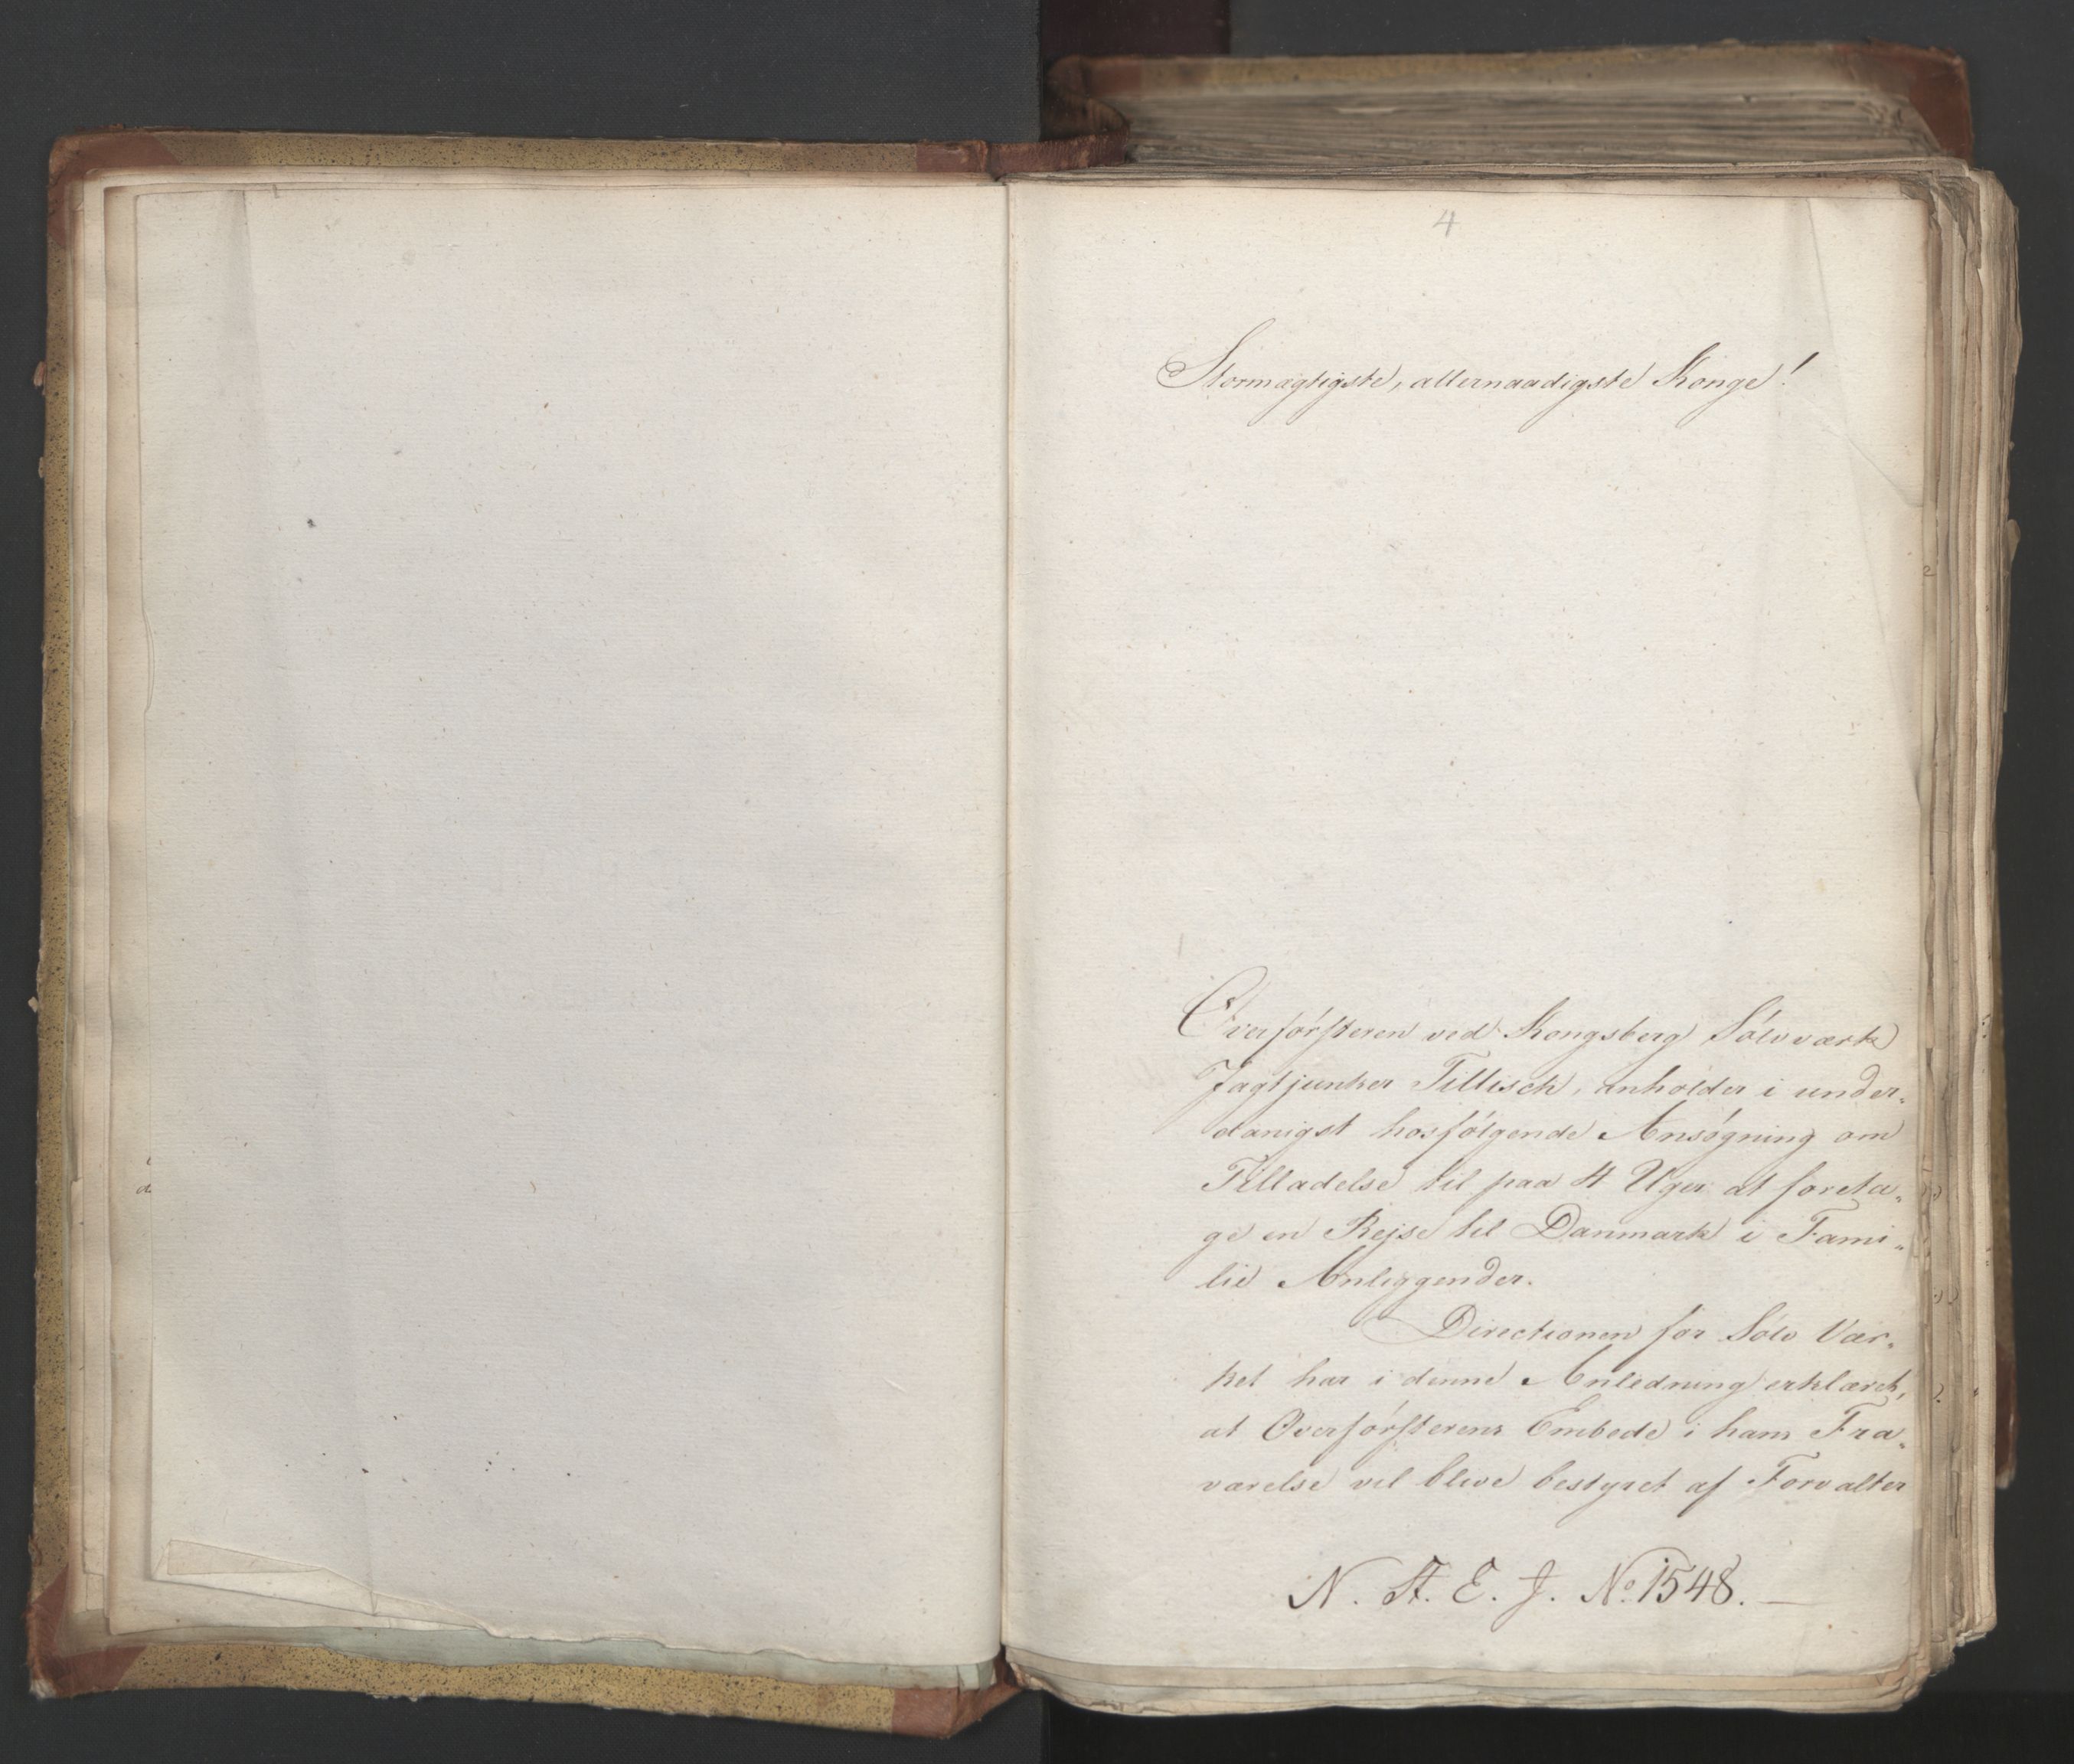 4
Stormægtigste, allernaadigste Konge!
Overförsteren ved Kongsberg Sölvværk
Jagtjunker Tillisch, anholder i under„
danigst hosfölgende Ansögning om
Tilladelse til paa 4 Uger at foreta„
ge en Rejse til Danmark i Fami„
lie Anliggender.
Directionen for Sölv Vær„
ket har i denne Anledning erklæret,
at Overförsterens Embede i hans Fra„
værelse vil blive bestyret af Forvalter
N. A. E. J. No. 1548. —